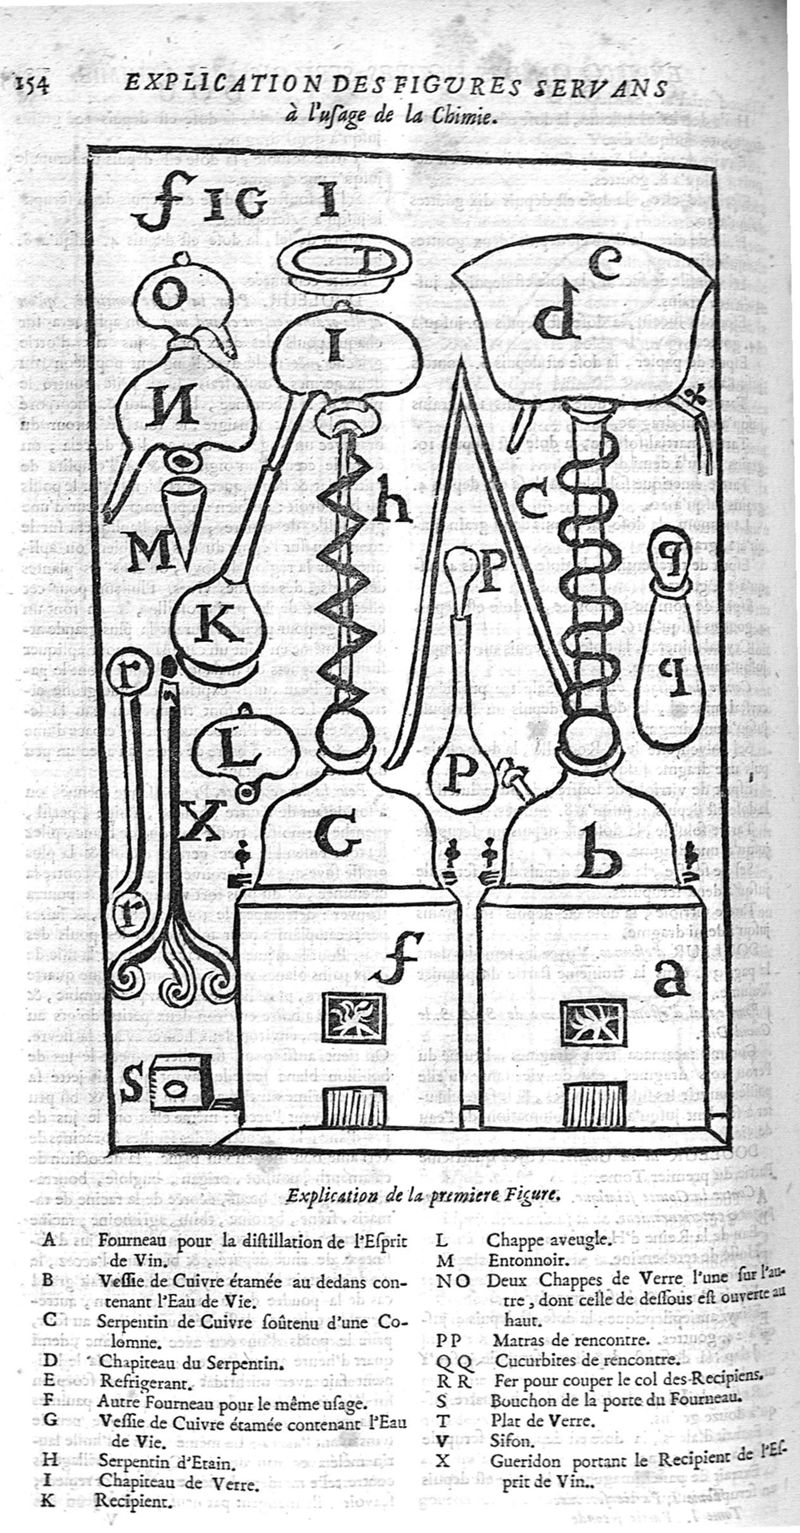 154
EXPLICATION DES FIGVRES SERVANS
à l'uſage de la Chimie.
FIG I
O
T
e
d
I
N
h
C
M
P
q
K
r
q
L
P
X
G
b
r
f
a
S
Explication de la premiere Figure.
A Fourneau pour la diſtillation de l'Eſprit
de Vin.
B Veſſie de Cuivre étamée au dedans con-
tenant l'Eau de Vie.
C Serpentin de Cuivre ſoûtenu d'une Co-
lomne.
D Chapiteau du Serpentin.
E Refrigerant.
F Autre Fourneau pour le même uſage.
G Veſſie de Cuivre étamée contenant l'Eau
de Vie.
H Serpentin d'Etain.
I Chapiteau de Verre.
K Recipient.
L Chappe aveugle.
M Entonnoir.
N O Deux Chappes de Verre l'une ſur l'au-
tre, dont celle de deſſous éſt ouverte au
haut.
P P Matras de rencontre.
Q Q Cucurbites de rencontre.
R R Fer pour couper le col des Recipiens.
S Bouchon de la porte du Fourneau.
T Plat de Verre.
V Sifon.
X Gueridon portant le Recipient de l'Eſ-
prit de Vin..